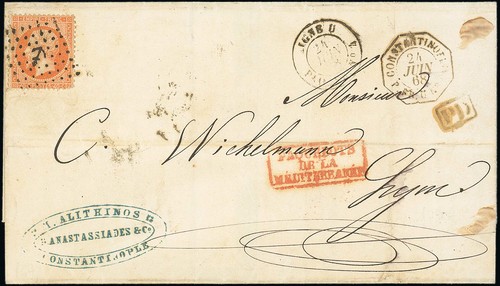 LIGNE U
JUIN
CONSTANTINOPLE
24
JUIN
65
Monsieur
PD
C. Wichelmann
PAQUEBOTS
DE LA
MÉDITERRANÉE
Lyon
ALITHINOS
ANASTASSIADES & Cº
CONSTANTINOPLE